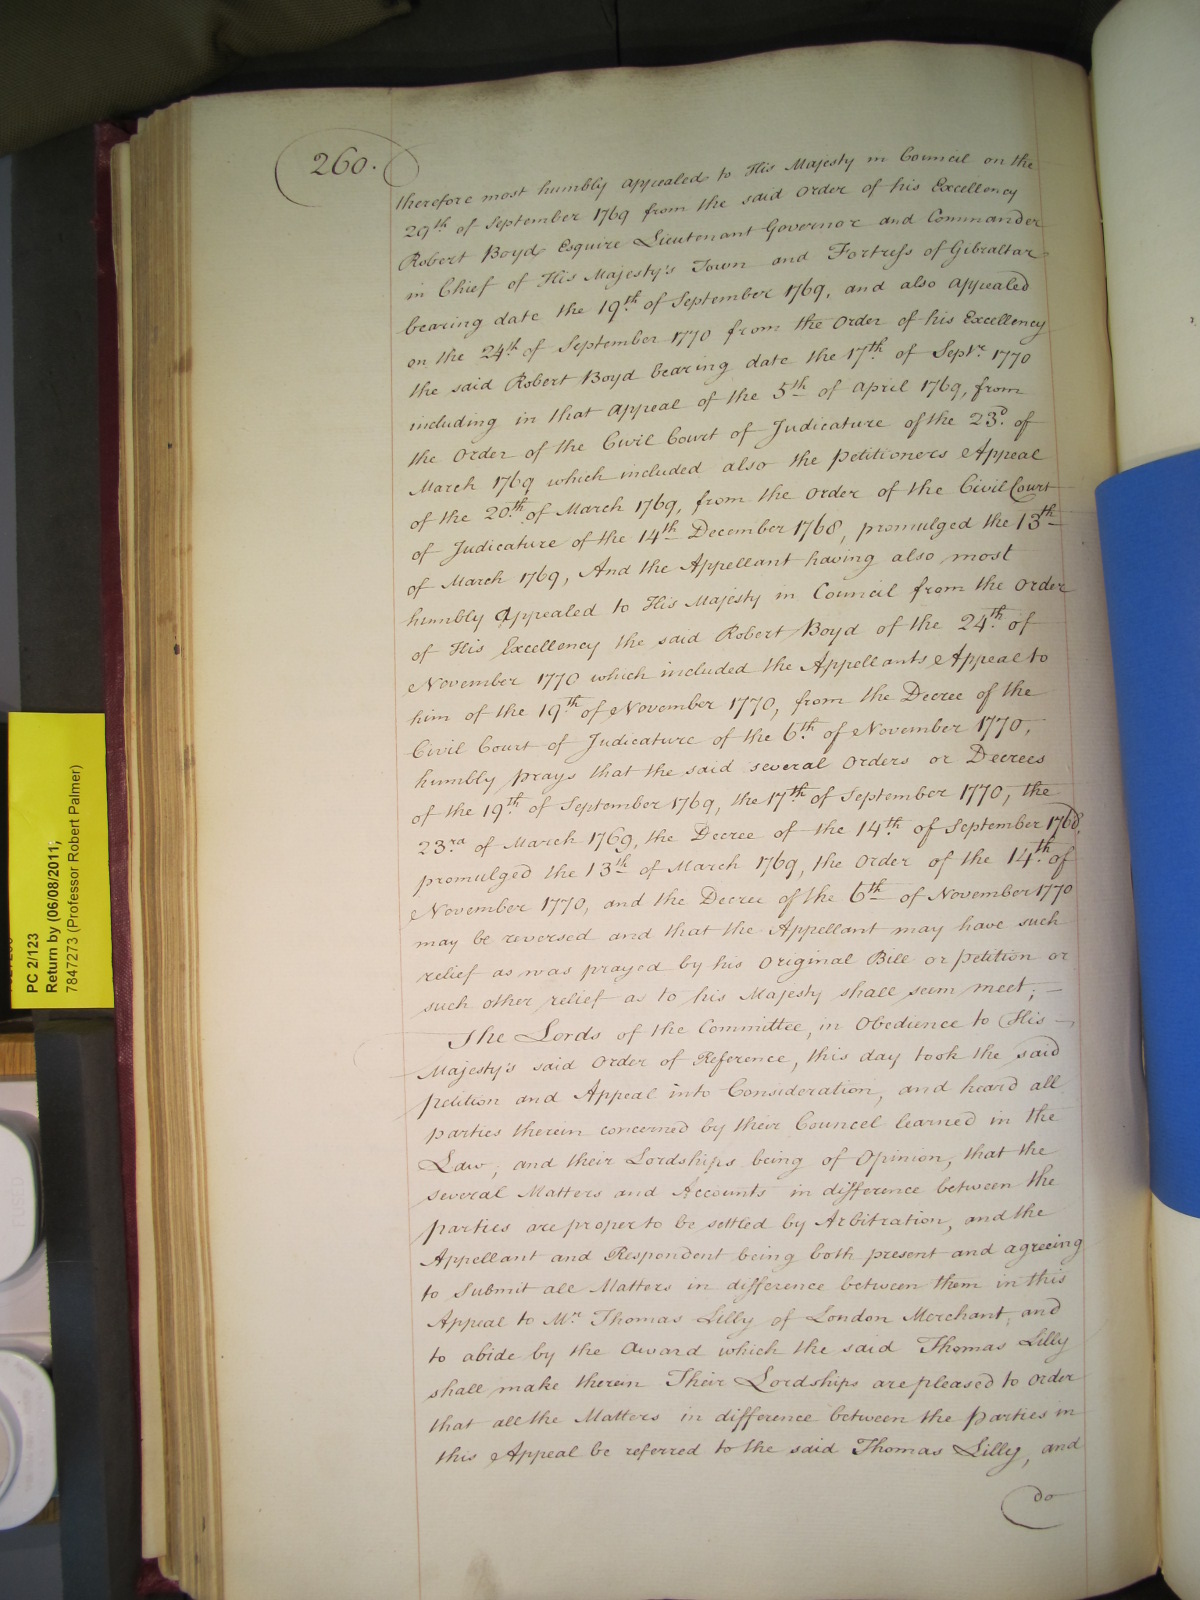 260.
therefore most humbly appealed to His Majesty in Council on the
29th of September 1769 from the said Order of his Excellency
Robert Boyd Esquire Lieutenant Governor and Commander
in Chief of His Majesty's Town and Fortress of Gibraltar
bearing date the 19th of September 1769, and also appealed
on the 24th of September 1770 from the Order of his Excellency
the said Robert Boyd bearing date the 17th of Septr. 1770
including in that appeal of the 5th of April 1769, from
the Order of the Civil Court of Judicature of the 23d. of
March 1769 which included also the Petitioners Appeal
of the 20th of March 1769, from the Order of the Civil Court
of Judicature of the 14th December 1768, promulged the 13th
of March 1769, And the Appellant having also most
humbly Appealed to His Majesty in Council from the Order
of His Excellency the said Robert Boyd of the 24th of
November 1770 which included the Appellants Appeal to
him of the 19th of November 1770, from the Decree of the
Civil Court of Judicature of the 6th of November 1770,
humbly prays that the said several Orders or Decrees
of the 19th of September 1769, the 17th of September 1770, the
23rd of March 1769, the Decree of the 14th of September 1768,
promulged the 13th of March 1769, the Order of the 14th of
November 1770, and the Decree of the 6th of November 1770
may be reversed and that the Appellant may have such
relief as was prayed by his Original Bill or petition or
such other relief as to his Majesty shall seem meet; —
The Lords of the Committee, in Obedience to His —
Majesty's said Order of Reference, this day took the said
petition and Appeal into Consideration, and heard all
parties therein concerned by their Councel learned in the
Law, and their Lordships being of Opinion, that the
several Matters and Accounts in difference between the
parties are proper to be settled by Arbitration, and the
Appellant and Respondent being both present and agreeing
to Submit all Matters in difference between them in this
Appeal to Mr. Thomas Lilly of London Merchant, and
to abide by the Award which the said Thomas Lilly
shall make therein Their Lordships are pleased to Order
that all the Matters in difference between the Parties in
this Appeal be referred to the said Thomas Lilly, and
do
PC 2/123
Return by (06/08/2011;
7847273 (Professor Robert Palmer)